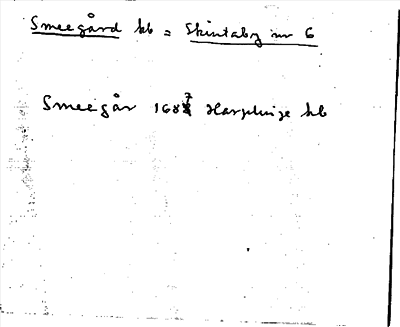 Smeegård kb = Skintaby nr 6
Smeegår 1687 Harplinge kb